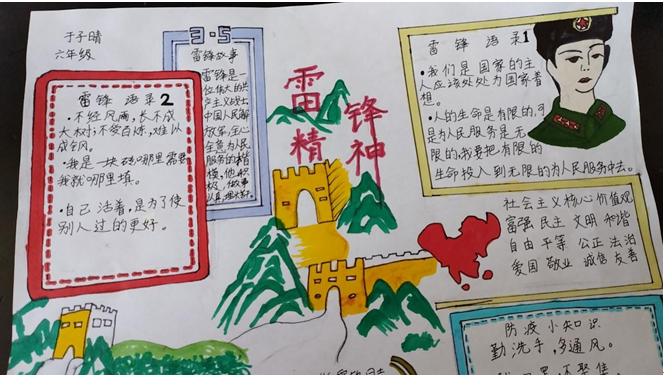 于子晴
六年级
3·5
雷锋故事
雷锋是一
位伟大的共
产主义战士
中国人民解
放军,全心
全意为人民
服务的楷
模,他积
极,做事
认真
雷锋
精神
雷锋语录1
·我们是国家的主
人应该处处为国家着
想。
·人的生命是有限的,可
是为人民服务是无
限的,我要把有限的
生命投入到无限的为人民服务中去。
雷锋语录2
·不经风雨,长不成
大树;不受百炼,难以
成钢。
·我是一块砖哪里需要
我就哪里填。
·自己活着,是为了使
别人过的更好。
社会主义核心价值观
富强 民主 文明 和谐
自由 平等 公正 法治
爱国 敬业 诚信 友善
防疫小知识
勤洗手,多通风。
不聚集